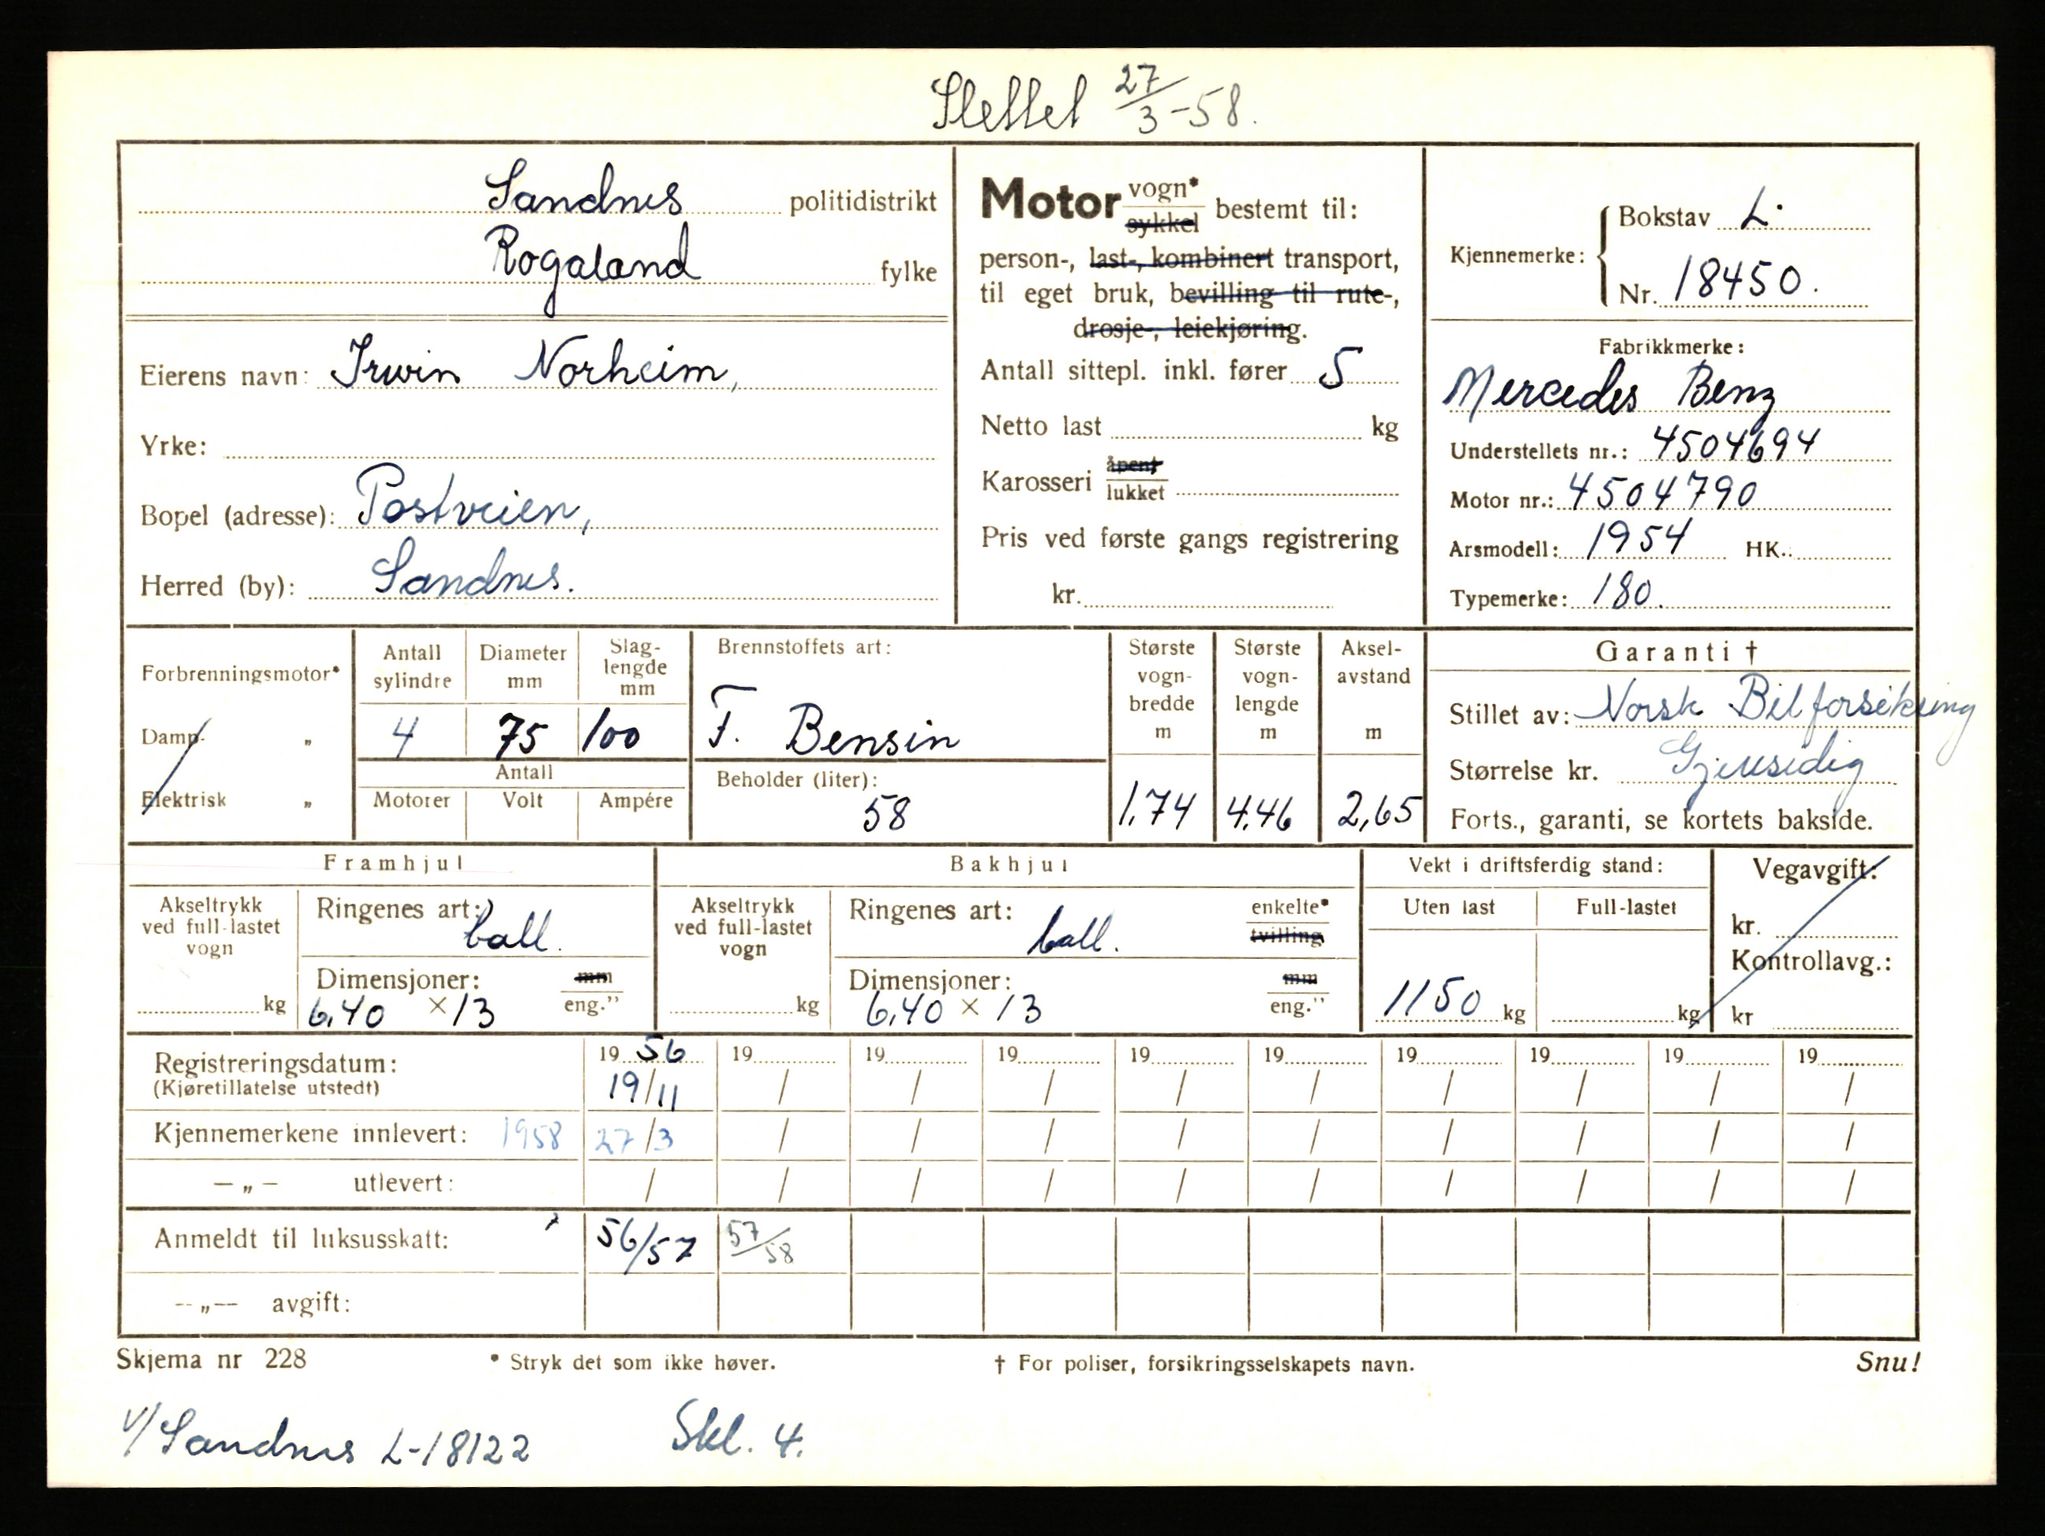 Slettet 27/3-58.
Sandnes politidistrikt
Rogaland fylke
Eierens navn: Irwin Norheim,
Yrke:
Bopel (adresse): Postveien,
Herred (by): Sandnes.
Motor vogn* sykkel bestemt til:
person-, last-, kombinert transport,
til eget bruk, bevilling til rute-,
drosje-, leiekjøring.
Antall sittepl. inkl. fører 5
Netto last kg
Karosseri åpent lukket
Pris ved første gangs registrering
kr.
Kjennemerke: Bokstav L.
Nr. 18450.
Fabrikkmerke:
Mercedes Benz
Understellets nr.: 4504694
Motor nr.: 4504790
Arsmodell: 1954 HK.:
Typemerke: 180.
Forbrenningsmotor*
Damp- „
Elektrisk „
Antall sylindre
Diameter mm
Slag-lengde mm
4 75 100
Antall
Motorer Volt Ampére
Brennstoffets art:
F. Bensin
Beholder (liter):
58
Største vogn-bredde m
1,74
Største vogn-lengde m
4,46
Aksel-avstand m
2,65
Garanti †
Stillet av: Norsk Bilforsikring
Størrelse kr. Gjensidig
Forts., garanti, se kortets bakside.
Framhjul
Akseltrykk ved full-lastet vogn
kg
Ringenes art: ball.
Dimensjoner: mm eng."
6,40 × 13
Bakhjul
Akseltrykk ved full-lastet vogn
kg
Ringenes art: ball. enkelte* tvilling
Dimensjoner: mm eng."
6,40 × 13
Vekt i driftsferdig stand:
Uten last Full-lastet
1150 kg kg
Vegavgift:
kr.
Kontrollavg.:
kr
Registreringsdatum: 19 56 19 19 19 19 19 19 19 19 19
(Kjøretillatelse utstedt) 19/11 / / / / / / / / /
Kjennemerkene innlevert: 1958 27/3 / / / / / / / / /
—„— utlevert: / / / / / / / / / /
Anmeldt til luksusskatt: 56/57 57/58
—„— avgift:
Skjema nr 228 * Stryk det som ikke høver. † For poliser, forsikringsselskapets navn. Snu!
v/Sandnes L-18122 Skl. 4.